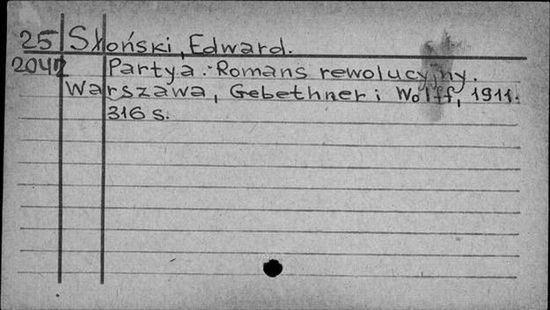 25 Słoński, Edward.
2047 Partya. Romans rewolucyjny.
Warszawa, Gebethner i Wolff, 1911.
316 s.